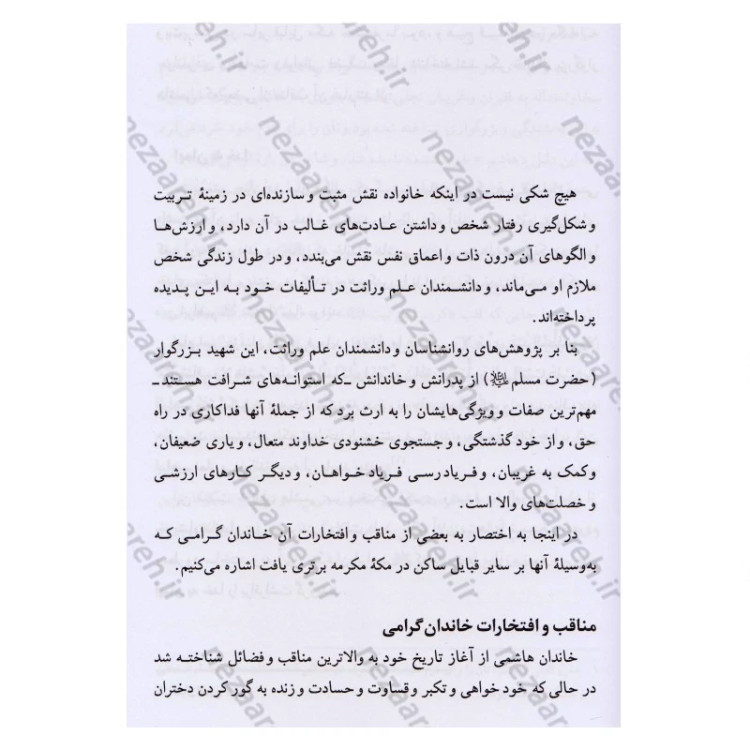 هیچ شکی نیست در اینکه خانواده نقش مثبت و سازنده‌ای در زمینهٔ تربیت
و شکل‌گیری رفتار شخص و داشتن عادت‌های غالب در آن دارد، و ارزش‌ها
و الگوهای آن درون ذات و اعماق نفس نقش می‌بندد، و در طول زندگی شخص
ملازم او می‌ماند، و دانشمندان علم وراثت در تألیفات خود به این پدیده
پرداخته‌اند.
بنا بر پژوهش‌های روانشناسان و دانشمندان علم وراثت، این شهید بزرگوار
(حضرت مسلم) از پدرانش و خاندانش ـ که استوانه‌های شرافت هستند ـ
مهم‌ترین صفات و ویژگی‌هایشان را به ارث برد که از جملهٔ آنها فداکاری در راه
حق، و از خود گذشتگی، و جستجوی خشنودی خداوند متعال، و یاری ضعیفان،
و کمک به غریبان، و فریادرسی فریادخواهان، و دیگر کارهای ارزشی
و خصلت‌های والا است.
در اینجا به اختصار به بعضی از مناقب و افتخارات آن خاندان گرامی که
به‌وسیلهٔ آنها بر سایر قبایل ساکن در مکهٔ مکرمه برتری یافت اشاره می‌کنیم.
مناقب و افتخارات خاندان گرامی
خاندان هاشمی از آغاز تاریخ خود به والاترین مناقب و فضائل شناخته شد
در حالی که خودخواهی و تکبر و قساوت و حسادت و زنده به گور کردن دختران
nezaareh.ir
nezaareh.ir
nezaareh.ir
nezaareh.ir
nezaareh.ir
nezaareh.ir
nezaareh.ir
nezaareh.ir
nezaareh.ir